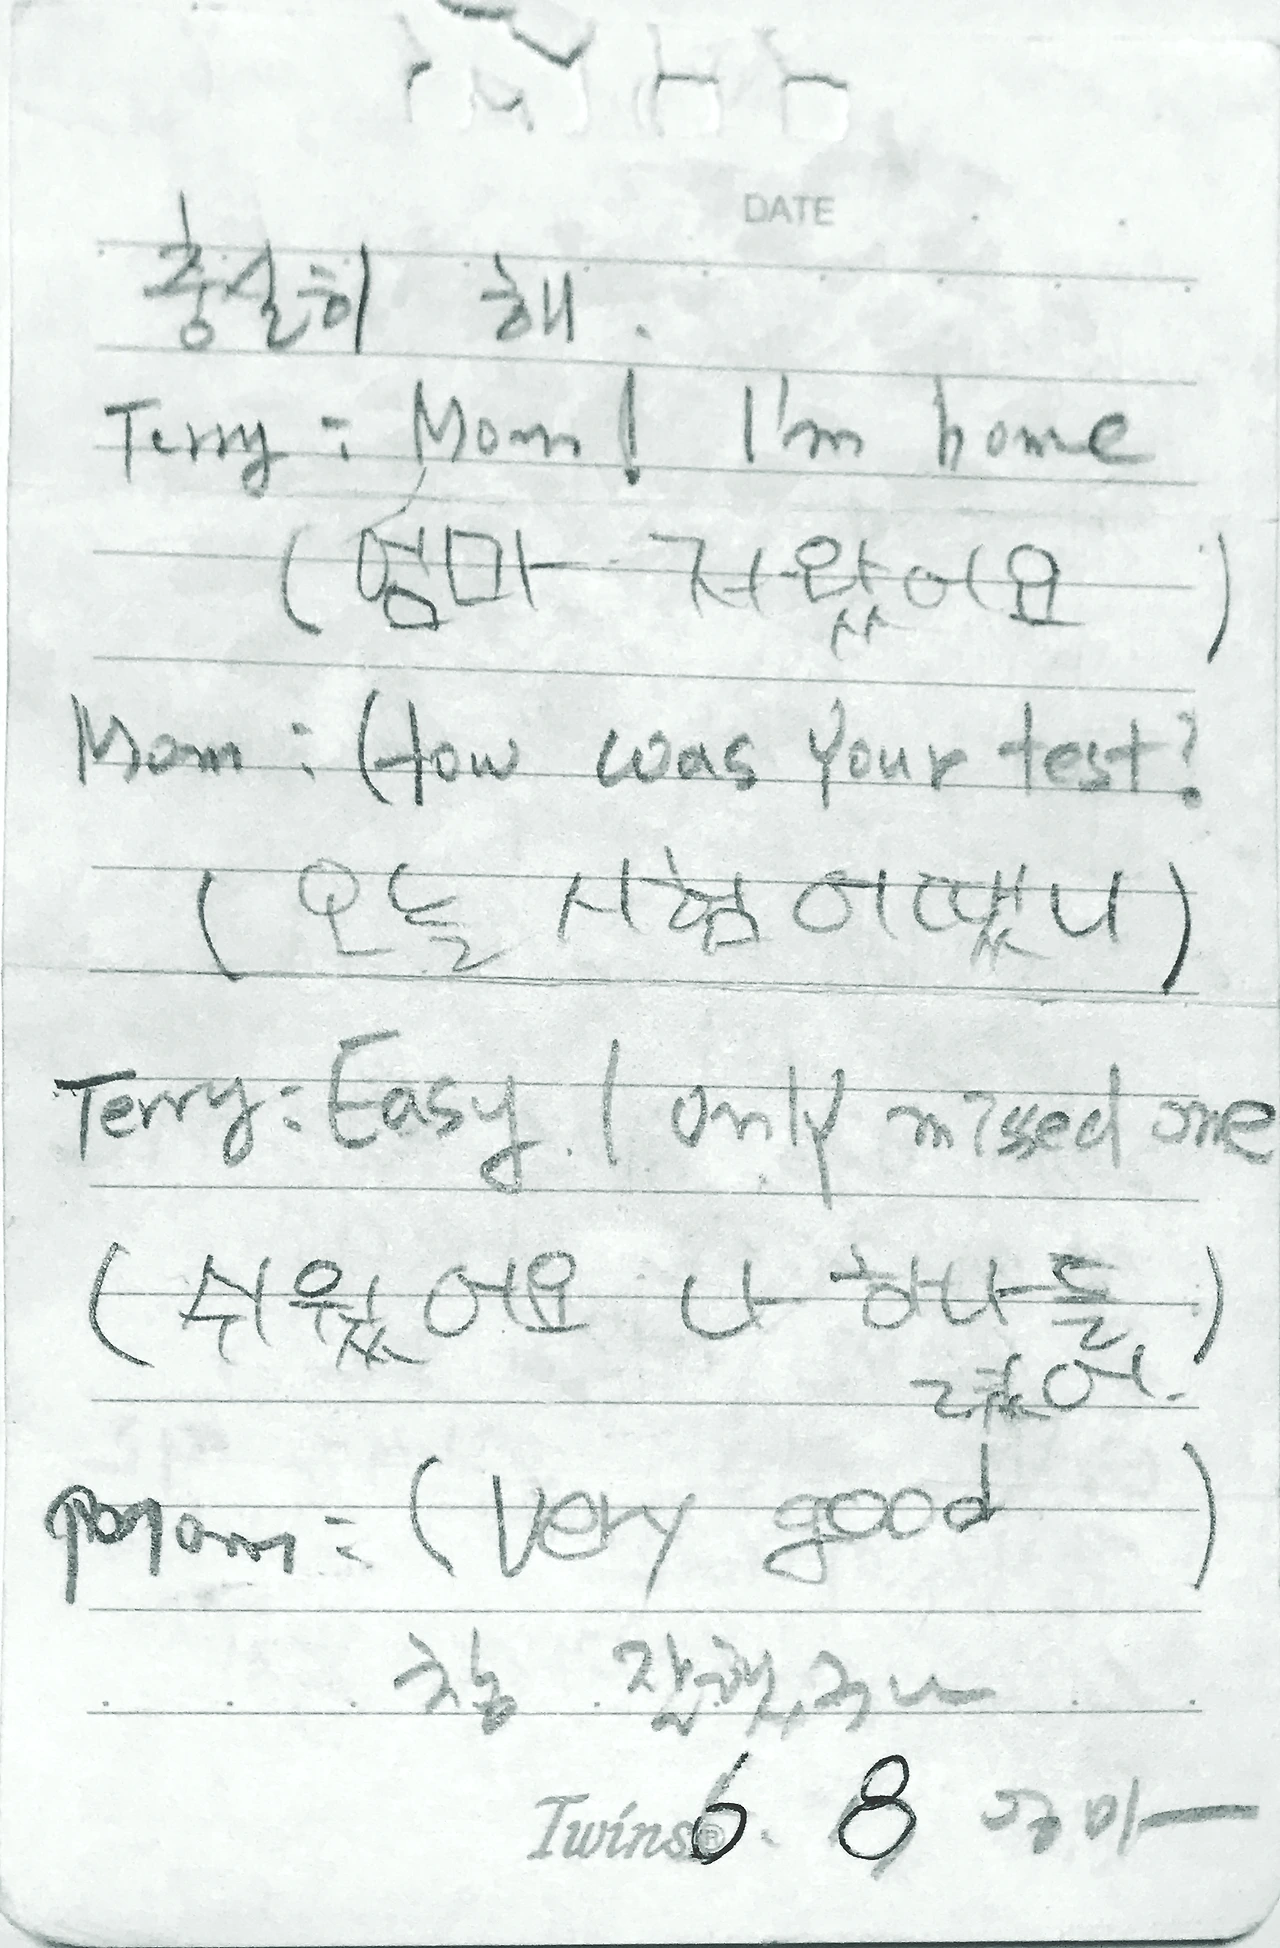 DATE
충실히 해.
Terry: Mom! I'm home
(엄마 저왔어요)
Mom: (How was your test?
(오늘 시험 어땠니)
Terry: Easy. I only missed one
(쉬웠어요 나 하나틀)
렸어.
Mom: (Very good)
참 잘했구나
Twins® 6. 8 엄마